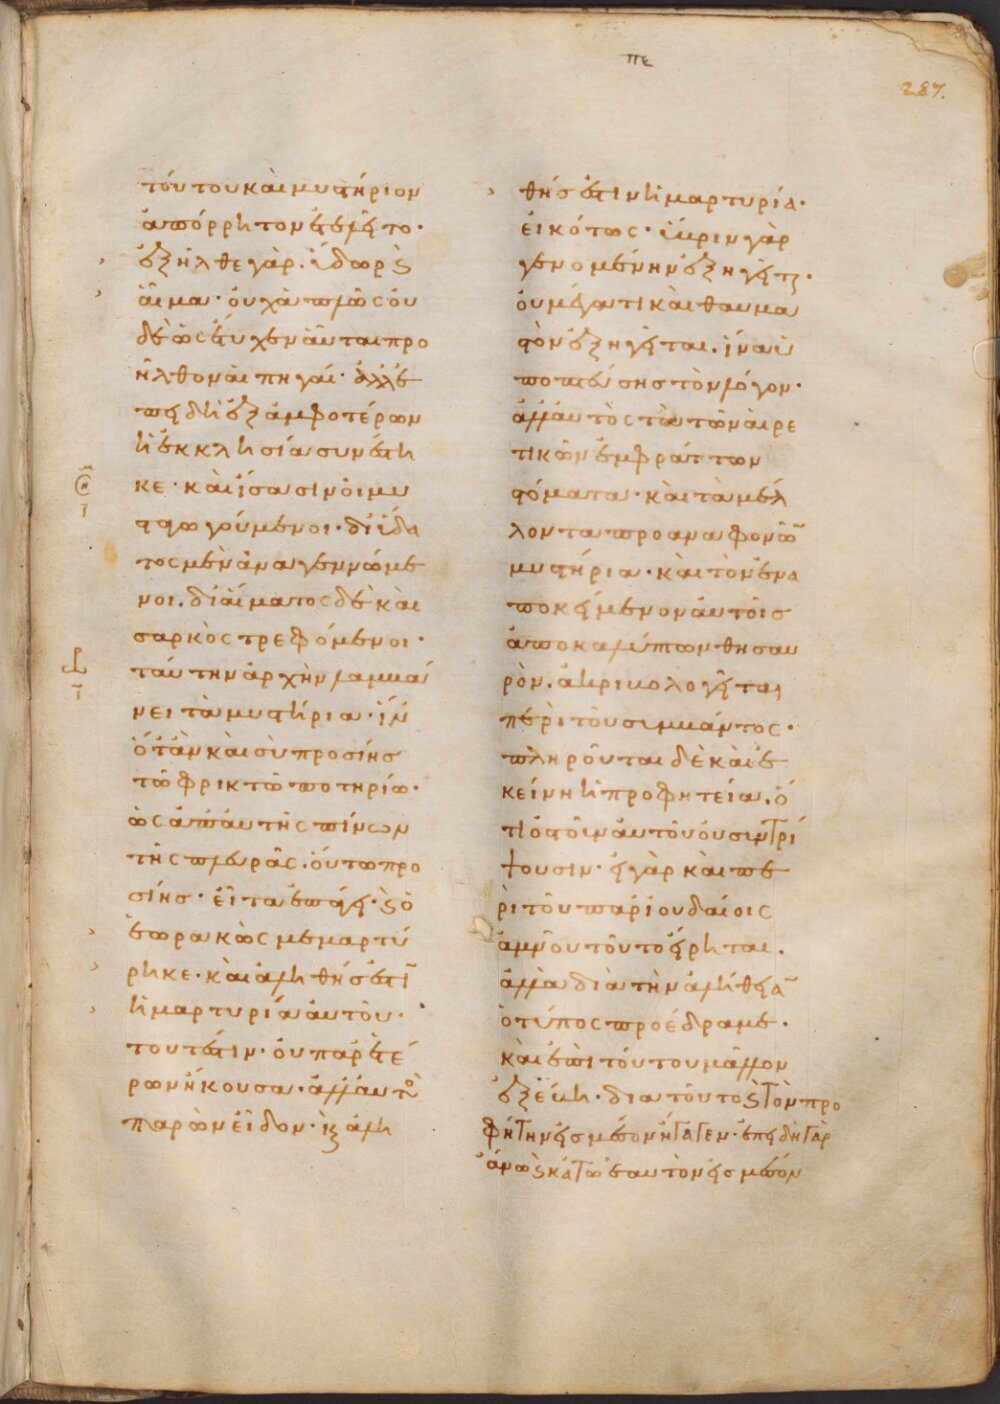 πε
287.
τούτου καὶ μυστήριον
ἀπόρρητον ἐτελεῖτο·
ἐξῆλθε γὰρ. ὕδωρ ϗ
αἷμα· οὐχ ἁπλῶς οὐ
δὲ ὡς ἔτυχεν αὗται προ
ῆλθον αἱ πηγαί· ἀλλ᾽ ἐ
πειδὴ ἐξ ἀμφοτέρων
ἡ ἐκκλησία συνέστη
κε· καὶ ἴσασιν οἱ μυ
σταγωγούμενοι· δι᾽ ὕδα
τος μὲν ἀναγεννώμε
νοι. δι᾽ αἵματος δὲ καὶ
σαρκὸς τρεφόμενοι·
ταύτην ἀρχὴν λαμβά
νει τὰ μυστήρια· ἵν᾽
ὅταν καὶ σὺ προσίῃς
τῷ φρικτῷ ποτηρίῳ·
ὡς ἀπ᾽ αὐτῆς πίνων
τῆς πλευρᾶς. οὕτω προ
σίῃς· εἶτα ἐπάγει· ϗ ὁ
ἑωρακὼς μεμαρτύ
ρηκε· καὶ ἀληθής ἐστῑ
ἡ μαρτυρία αὐτοῦ·
τουτέστιν· οὐ παρ᾽ ἑτέ
ρων ἤκουσα· ἀλλ᾽ αὐτὸ
παρὼν εἶδον· ϗ ἀλη
θής ἐστιν ἡ μαρτυρία·
εἰκότως· ὕβριν γὰρ
γενομένην ἐξηγεῖτϗ·
οὐ μέγα τι καὶ θαυμα
στὸν ἐξηγεῖται. ἵνα ὑ
ποπτεύσῃς τὸν λόγον·
ἀλλ᾽ αὐτὸς τὰ τῶν αἱρε
τικῶν ἐμφράττων
στόματα· καὶ τὰ μέλ
λοντα προαναφονῶ̄
μυστήρια· καὶ τὸν ἐνα
ποκείμενον αὐτοῖς
ἀποκαλύπτων θησαυ
ρὸν. ἀκριβολογεῖται
περὶ τοῦ συμβάντος·
πληροῦται δὲ καὶ ἐ
κείνη ἡ προφητεία. ὅ
τι ὀστοῖν αὐτοῦ οὐ συντρί
ψουσιν· εἰ γὰρ καὶ πε
ρὶ τοῦ παρ᾽ ἰουδαίοις
ἀμνοῦ τοῦτο εἴρηται.
ἀλλὰ διὰ τὴν ἀλήθειᾱ
ὁ τύπος προέδραμε·
καὶ ἐπὶ τούτου μᾶλλον
ἐξέβη· διατοῦτο ϗ τὸν προ
φήτην εἰς μέσον ἤγαγεν· ἐπειδὴ γὰρ
ἄνω ϗ κάτω ἑαυτὸν εἰς μέσον